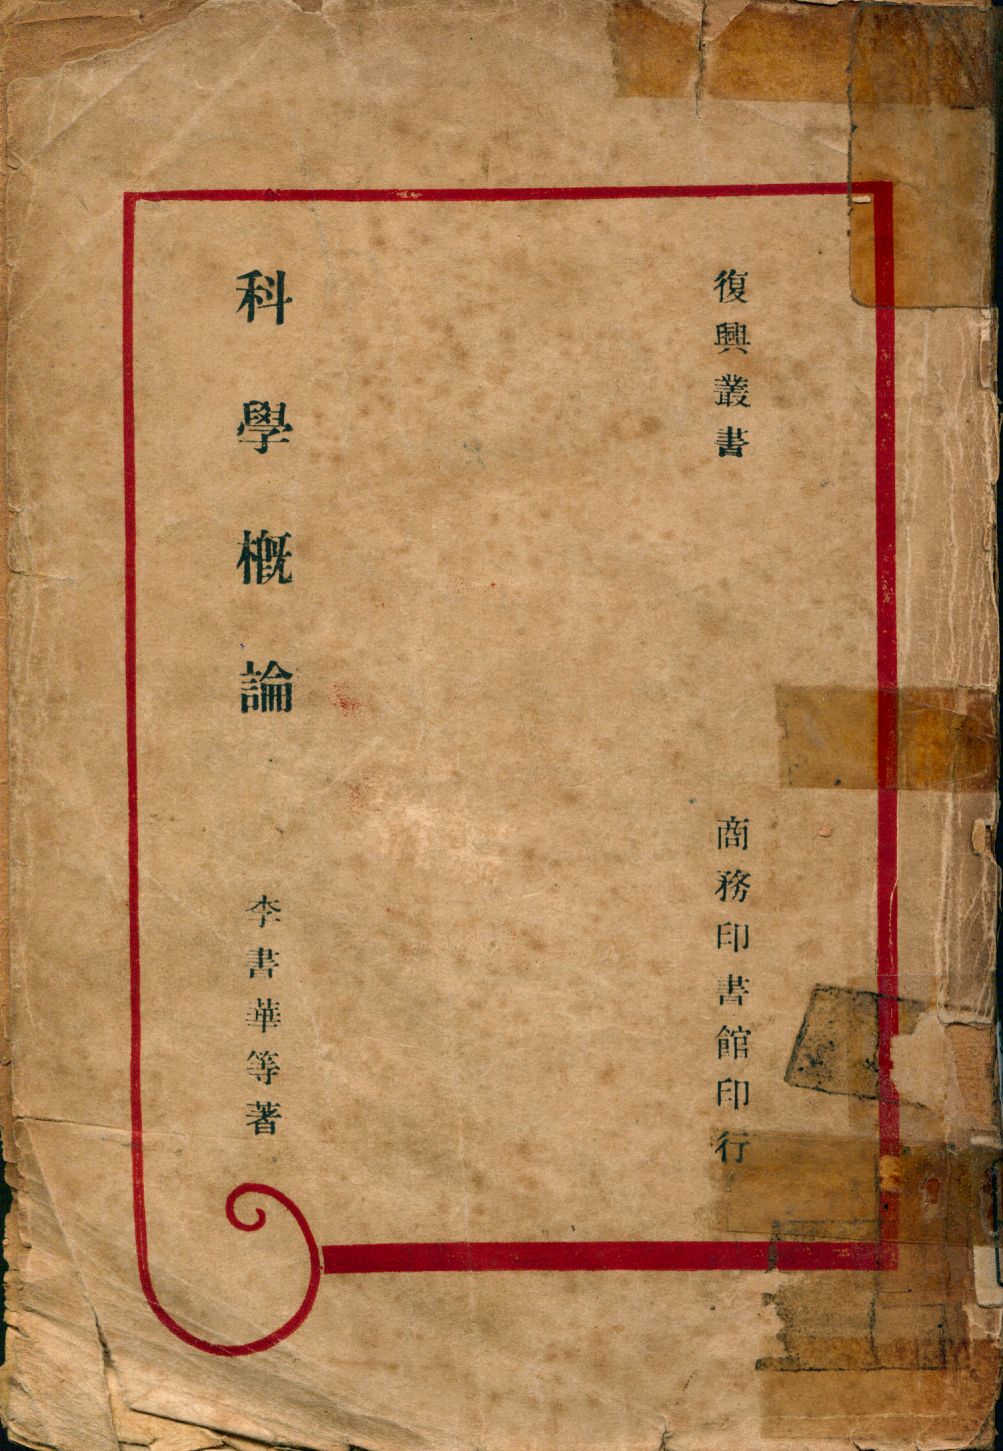 復興叢書
商務印書館印行
科學概論
李書華等著